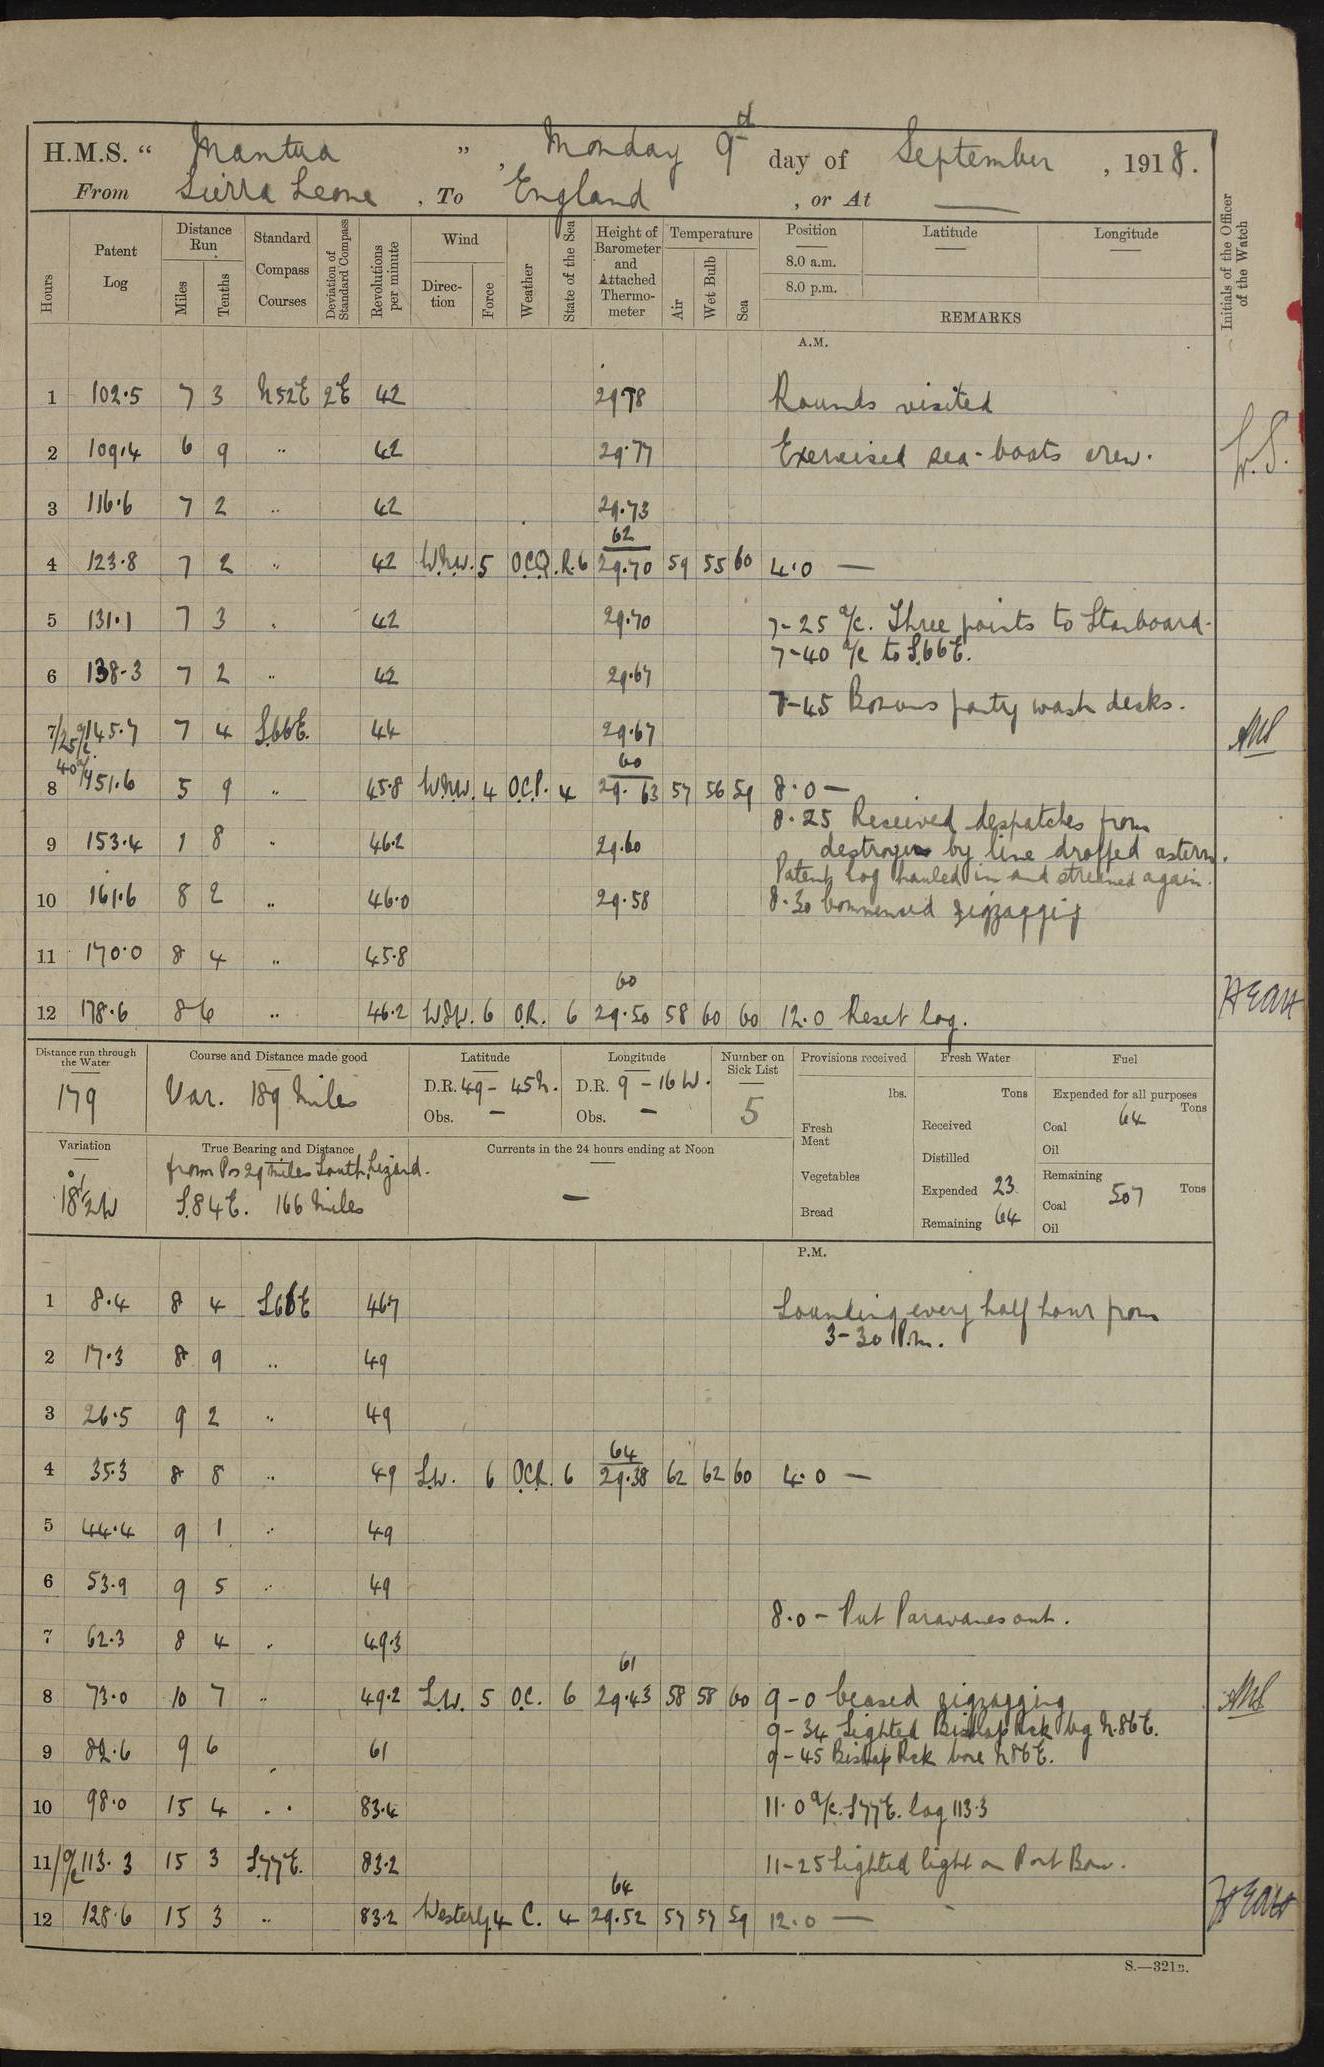 H.M.S. “ Mantua ” , Monday 9th day of September , 1918.
From Sierra Leone , To England , or At —
Hours
Patent Log
Distance Run
Miles
Tenths
Standard Compass Courses
Deviation of Standard Compass
Revolutions per minute
Wind
Direction
Force
Weather
State of the Sea
Height of Barometer and Attached Thermometer
Temperature
Air
Wet Bulb
Sea
Position
8.0 a.m.
8.0 p.m.
Latitude
Longitude
REMARKS
Initials of the Officer of the Watch
A.M.
1 102.5 7 3 N52E 2E 42 29.78 Rounds visited
2 109.4 6 9 " 42 29.77 Exercised sea-boats crew.
3 116.6 7 2 " 42 29.73
62
4 123.8 7 2 " 42 W.N.W. 5 O.C.Q.R. 6 29.70 59 55 60 4.0 —
5 131.1 7 3 " 42 29.70 7-25 a/c. Three points to Starboard.
7-40 a/c to S.66E.
6 138.3 7 2 " 42 29.67
7-45 Bosuns party wash decks.
7/25 a/c 145.7 7 4 S.66E. 44 29.67
40 a/c 60
8 151.6 5 9 " 45.8 W.N.W. 4 O.C.P. 4 29.63 57 56 59 8.0 —
8.25 Received despatches from
9 153.4 1 8 " 46.2 29.60 destroyer by line dropped astern.
Patent log hauled in and streamed again.
10 161.6 8 2 " 46.0 29.58 8.30 Commenced zigzaggig
11 170.0 8 4 " 45.8
60
12 178.6 8 6 " 46.2 W.S.W. 6 O.R. 6 29.50 58 60 60 12.0 Reset log.
Distance run through the Water
179
Course and Distance made good
Var. 189 Miles
Latitude
D.R. 49-45N.
Obs. —
Longitude
D.R. 9-16W.
Obs. —
Number on Sick List
5
Provisions received
lbs.
Fresh Meat
Vegetables
Bread
Fresh Water
Tons
Received
Distilled
Expended 23
Remaining 64
Fuel
Expended for all purposes
Tons
Coal 64
Oil
Remaining
Tons
Coal 507
Oil
Variation
18½W
True Bearing and Distance
from Ps 29 miles South Lizard.
S.84E. 166 Miles
Currents in the 24 hours ending at Noon
—
P.M.
1 8.4 8 4 S66E 46.7 Sounding every half hour from
3-30 P.m.
2 17.3 8 9 " 49
3 26.5 9 2 " 49
64
4 35.3 8 8 " 49 S.W. 6 O.C.R. 6 29.38 62 62 60 4.0 —
5 44.4 9 1 " 49
6 53.9 9 5 " 49
8.0 - Put Paravanes out.
7 62.3 8 4 " 49.3
61
8 73.0 10 7 " 49.2 S.W. 5 O.C. 6 29.43 58 58 60 9-0 Ceased zigzagging
9-34 Sighted Bishop Rck bg N.86E.
9 82.6 9 6 61 9-45 Bishop Rck bore N86E.
10 98.0 15 4 " 83.4 11.0 a/c. S77E. log 113.3
11/a/c 113.3 15 3 S.77E. 83.2 11-25 Sighted light on Port Bow.
64
12 128.6 15 3 " 83.2 Westerly. 4 C. 4 29.52 57 57 59 12.0 —
S.—321B.